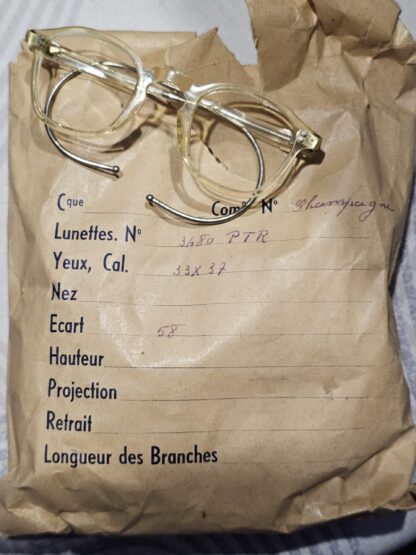 Cque Comde No Champagne
Lunettes. No 3480 PTR
Yeux, Cal. 33X37
Nez
Ecart 58
Hauteur
Projection
Retrait
Longueur des Branches